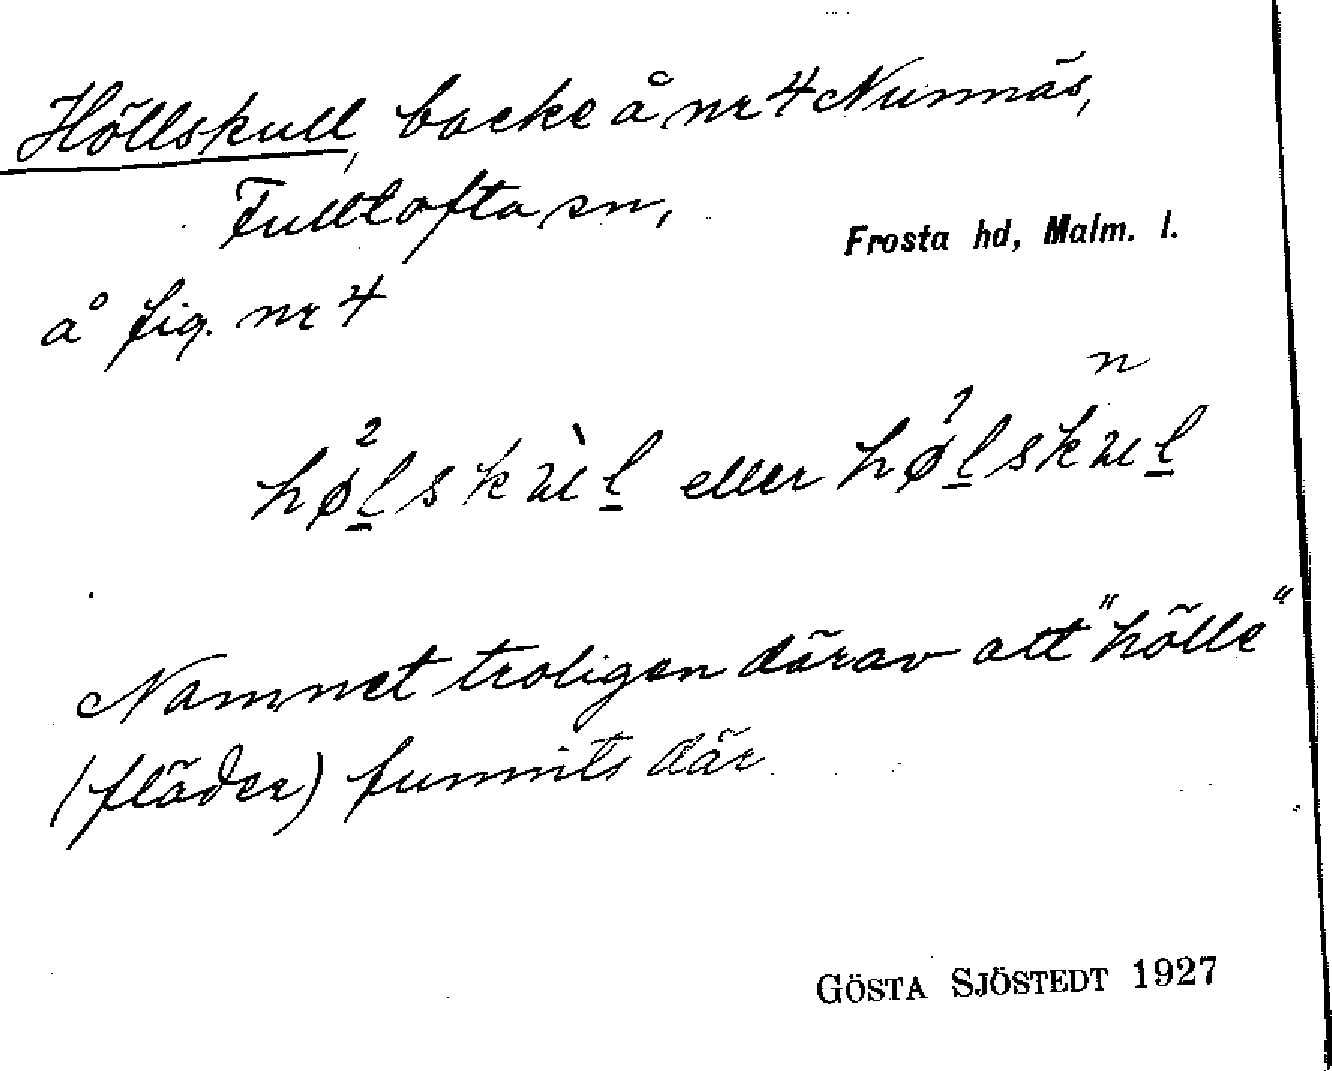 Höllskull, backe å nr 4 Nunnäs,
Fulltofta sn,
Frosta hd, Malm. l.
å fig. nr 4
hø²l̲skùl̲ eller hø¹l̲skul̲
n
Namnet troligen därav att "hölle"
(fläder) funnits där
GÖSTA SJÖSTEDT 1927